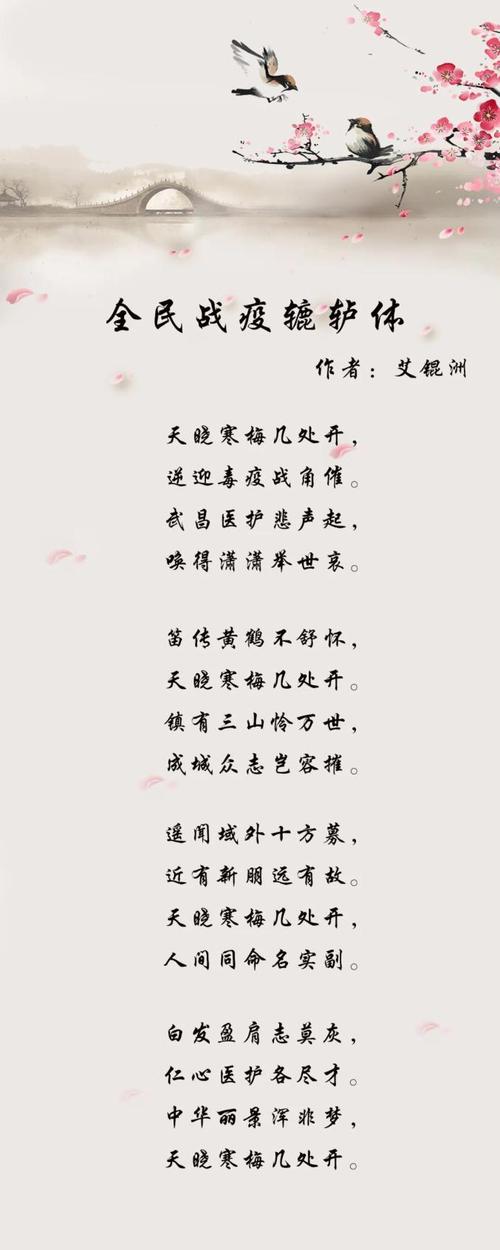 全民战疫辘轳体
作者：艾锟洲
天晓寒梅几处开，
逆迎毒疫战角催。
武昌医护悲声起，
唤得潇潇举世哀。
笛传黄鹤不舒怀，
天晓寒梅几处开。
镇有三山怜万世，
成城众志岂容摧。
遥闻域外十方募，
近有新朋远有故。
天晓寒梅几处开，
人间同命名实副。
白发盈肩志莫灰，
仁心医护各尽才。
中华丽景浑非梦，
天晓寒梅几处开。